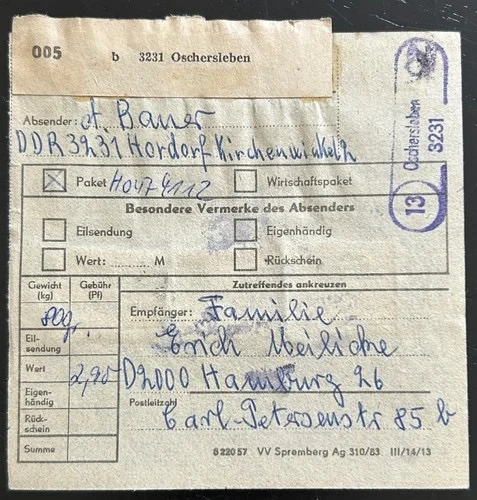 005 b 3231 Oschersleben
Absender: A. Bauer
DDR 3231 Hordorf Kirchenwinkel 2
Oschersleben 3231
13
Paket H0474112 Wirtschaftspaket
Besondere Vermerke des Absenders
Eilsendung Eigenhändig
Wert: ........ M Rückschein
Gewicht (kg) Gebühr (Pf) Zutreffendes ankreuzen
800g. Empfänger: Familie
Eil-
sendung
Erich
Wert 2,90 D2000 Hamburg 26
Eigen-
händig
Postleitzahl Carl-Petersenstr 85 b
Rück-
schein
Summe
8 220 57 VV Spremberg Ag 310/83 III/14/13